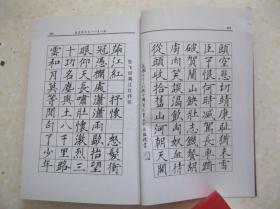 滿江紅 抒懷 怒髮衝
冠憑欄處瀟瀟雨歇抬望
眼仰天長嘯壯懷激烈三
十功名塵與土八千里路
雲和月莫等閒白了少年
頭空悲切靖康恥猶未雪
臣子恨何時滅駕長車踏
破賀蘭山缺壯志飢餐胡
虜肉笑談渴飲匈奴血待
從頭收拾舊山河朝天闕